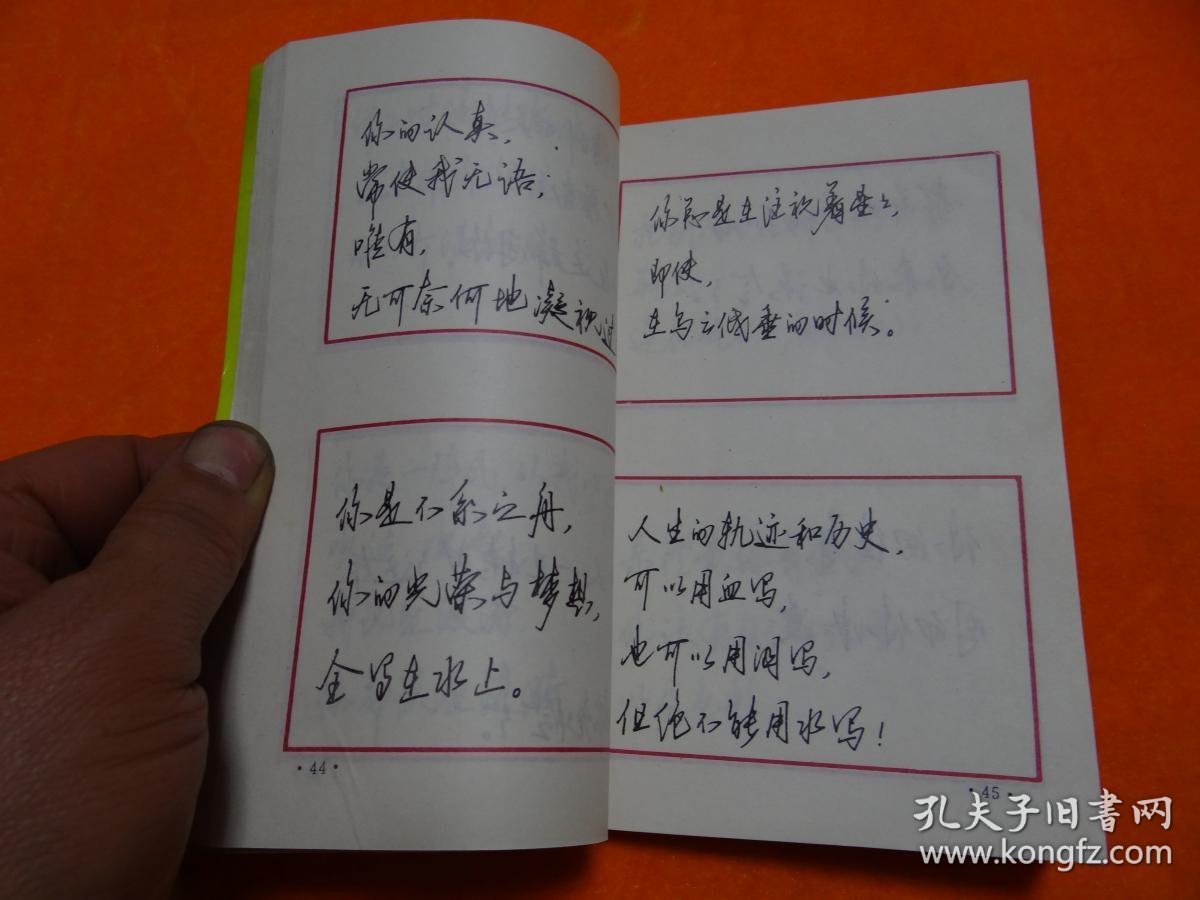 你的认真，
常使我无语；
唯有，
无可奈何地凝视过
你是不系之舟，
你的光荣与梦想，
全写在水上。
·44·
你总是在注视着星星，
即使，
在乌云低垂的时候。
人生的轨迹和历史，
可以用血写，
也可以用泪写，
但绝不能用水写！
·45·
孔夫子旧书网
www.kongfz.com